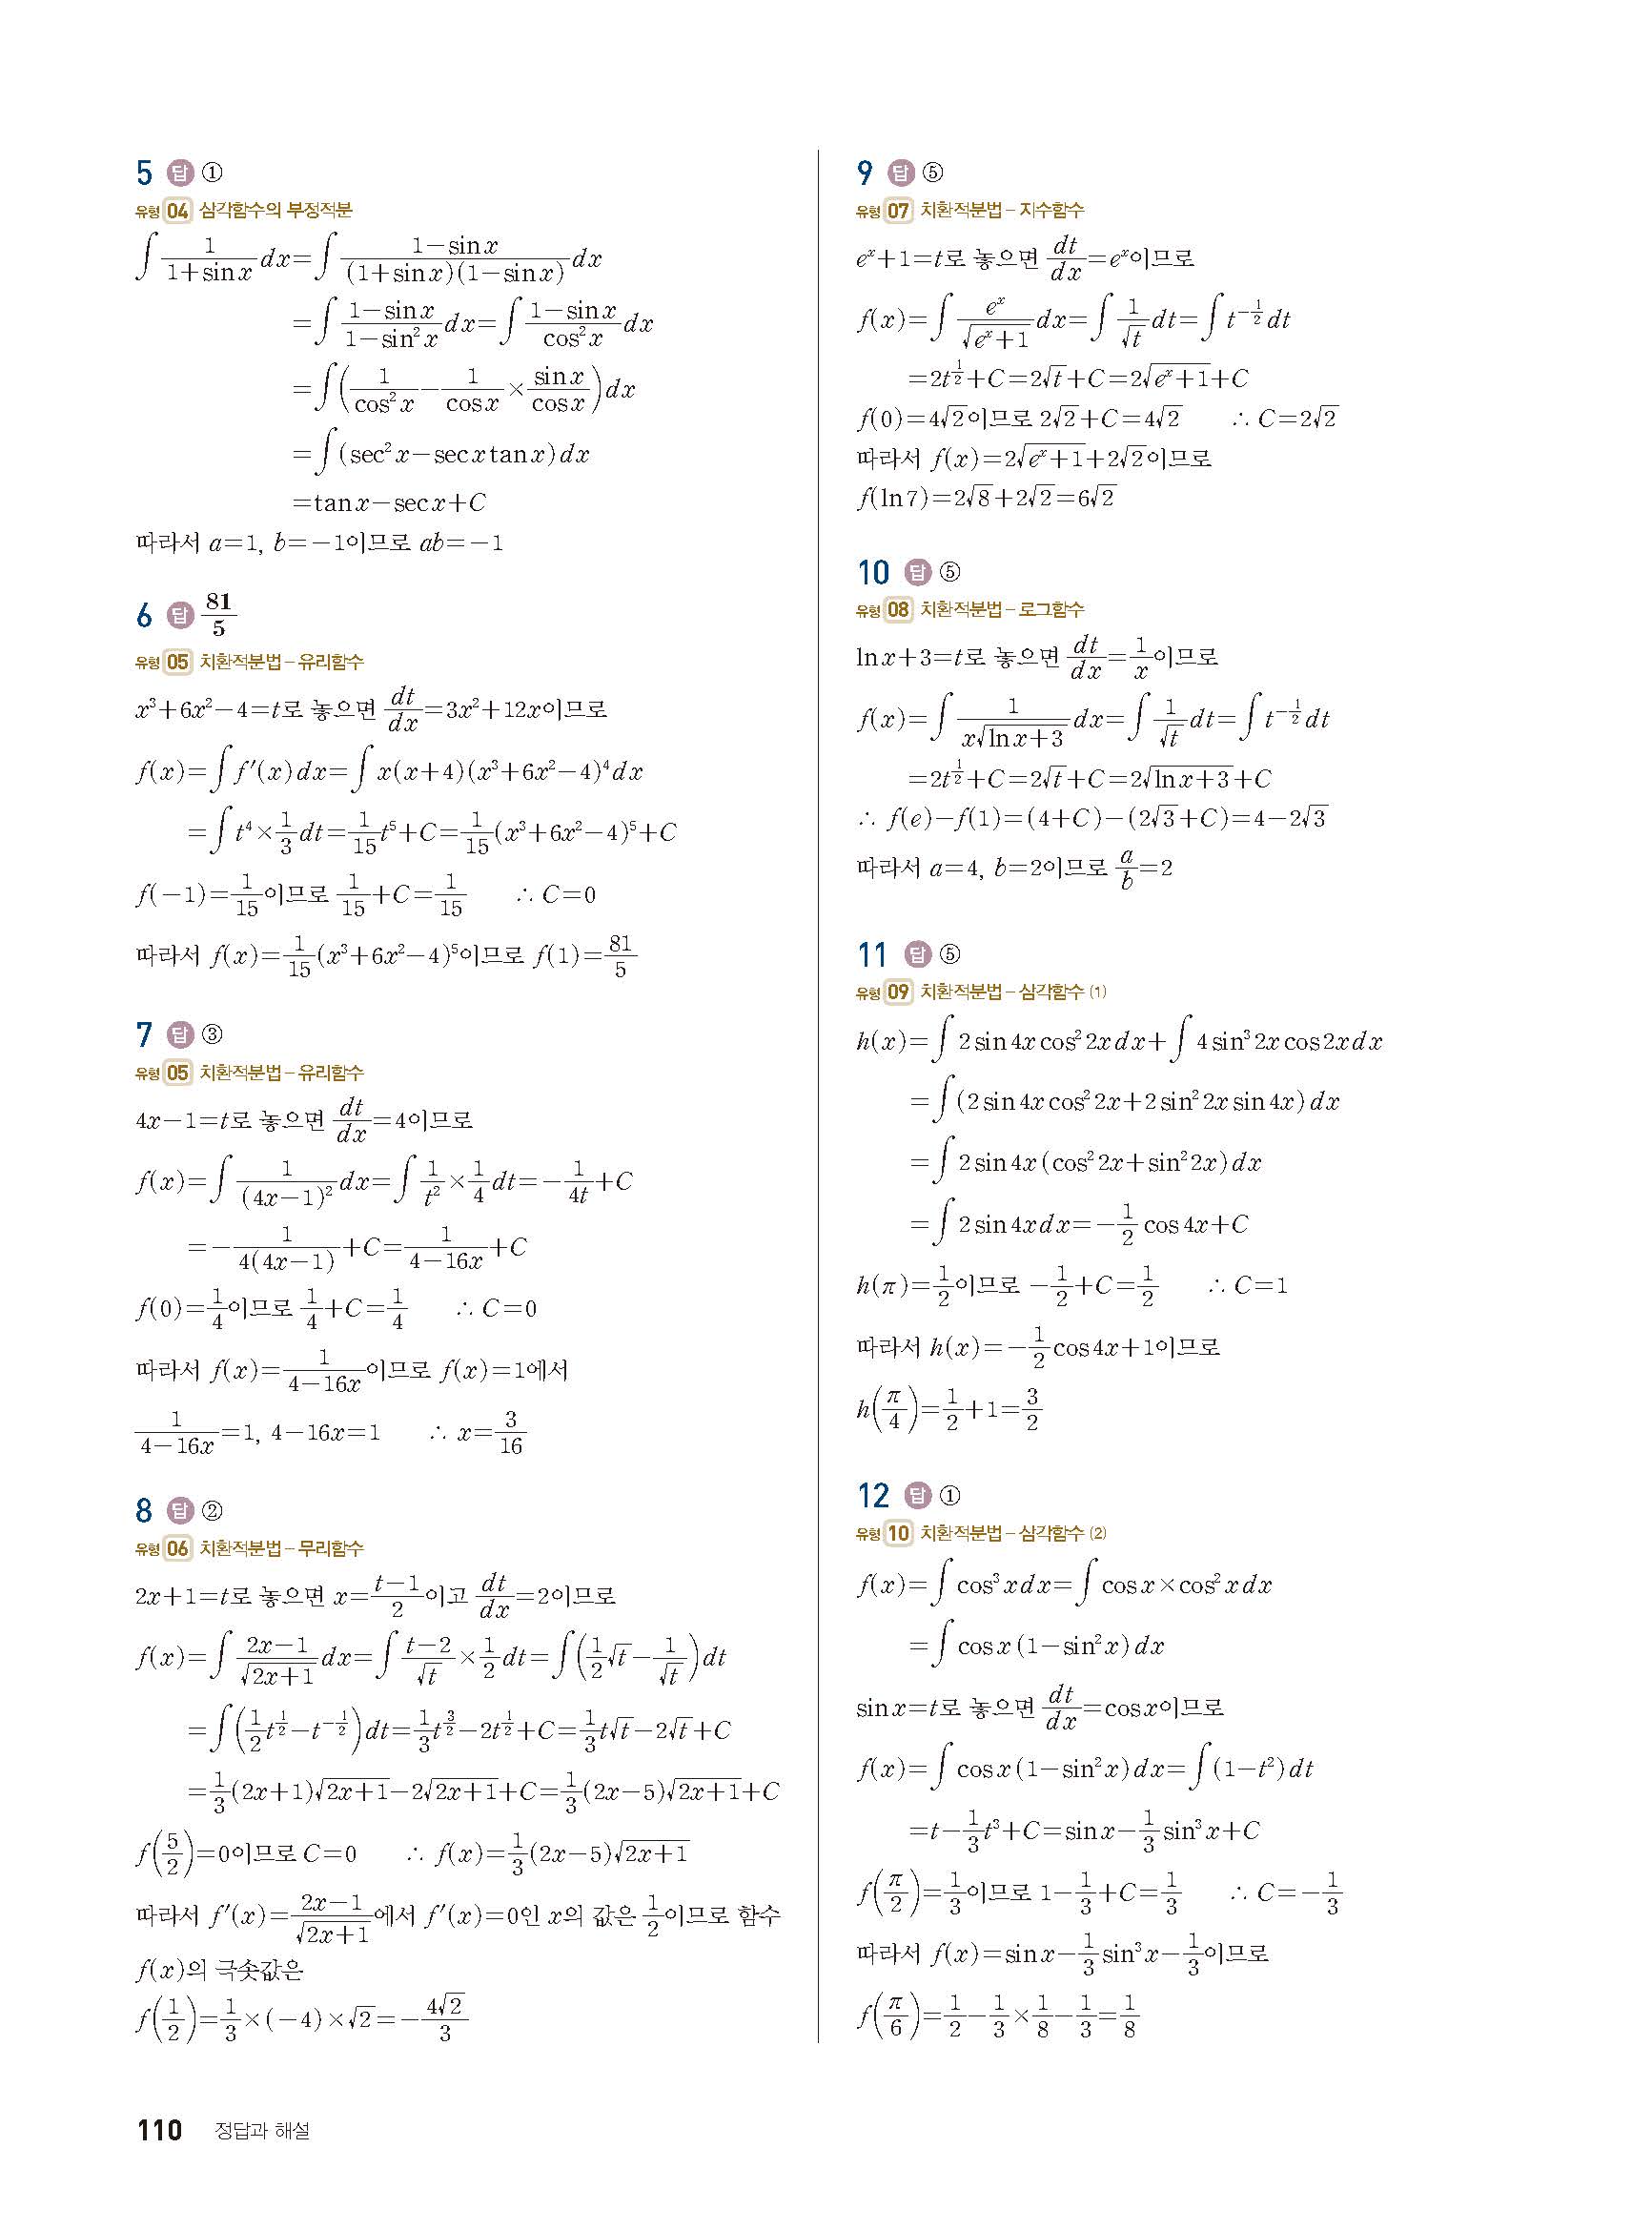 5 답 ①
유형 04 삼각함수의 부정적분
∫ 1/(1+sin x) dx=∫ (1−sin x)/((1+sin x)(1−sin x)) dx
=∫ (1−sin x)/(1−sin² x) dx=∫ (1−sin x)/(cos² x) dx
=∫ (1/(cos² x)−1/(cos x)×(sin x)/(cos x)) dx
=∫ (sec² x−sec x tan x) dx
=tan x−sec x+C
따라서 a=1, b=−1이므로 ab=−1
6 답 81/5
유형 05 치환적분법−유리함수
x³+6x²−4=t로 놓으면 dt/dx=3x²+12x이므로
f(x)=∫ f′(x) dx=∫ x(x+4)(x³+6x²−4)⁴ dx
=∫ t⁴×1/3 dt=1/15 t⁵+C=1/15 (x³+6x²−4)⁵+C
f(−1)=1/15이므로 1/15+C=1/15 ∴ C=0
따라서 f(x)=1/15 (x³+6x²−4)⁵이므로 f(1)=81/5
7 답 ③
유형 05 치환적분법−유리함수
4x−1=t로 놓으면 dt/dx=4이므로
f(x)=∫ 1/(4x−1)² dx=∫ 1/t²×1/4 dt=−1/(4t)+C
=−1/(4(4x−1))+C=1/(4−16x)+C
f(0)=1/4이므로 1/4+C=1/4 ∴ C=0
따라서 f(x)=1/(4−16x)이므로 f(x)=1에서
1/(4−16x)=1, 4−16x=1 ∴ x=3/16
8 답 ②
유형 06 치환적분법−무리함수
2x+1=t로 놓으면 x=(t−1)/2이고 dt/dx=2이므로
f(x)=∫ (2x−1)/√(2x+1) dx=∫ (t−2)/√t×1/2 dt=∫ (1/2 √t−1/√t) dt
=∫ (1/2 t^(1/2)−t^(−1/2)) dt=1/3 t^(3/2)−2t^(1/2)+C=1/3 t√t−2√t+C
=1/3 (2x+1)√(2x+1)−2√(2x+1)+C=1/3 (2x−5)√(2x+1)+C
f(5/2)=0이므로 C=0 ∴ f(x)=1/3 (2x−5)√(2x+1)
따라서 f′(x)=(2x−1)/√(2x+1)에서 f′(x)=0인 x의 값은 1/2이므로 함수
f(x)의 극솟값은
f(1/2)=1/3×(−4)×√2=−4√2/3
9 답 ⑤
유형 07 치환적분법−지수함수
eˣ+1=t로 놓으면 dt/dx=eˣ이므로
f(x)=∫ eˣ/√(eˣ+1) dx=∫ 1/√t dt=∫ t^(−1/2) dt
=2t^(1/2)+C=2√t+C=2√(eˣ+1)+C
f(0)=4√2이므로 2√2+C=4√2 ∴ C=2√2
따라서 f(x)=2√(eˣ+1)+2√2이므로
f(ln 7)=2√8+2√2=6√2
10 답 ⑤
유형 08 치환적분법−로그함수
ln x+3=t로 놓으면 dt/dx=1/x이므로
f(x)=∫ 1/(x√(ln x+3)) dx=∫ 1/√t dt=∫ t^(−1/2) dt
=2t^(1/2)+C=2√t+C=2√(ln x+3)+C
∴ f(e)−f(1)=(4+C)−(2√3+C)=4−2√3
따라서 a=4, b=2이므로 a/b=2
11 답 ⑤
유형 09 치환적분법−삼각함수 (1)
h(x)=∫ 2 sin 4x cos² 2x dx+∫ 4 sin³ 2x cos 2x dx
=∫ (2 sin 4x cos² 2x+2 sin² 2x sin 4x) dx
=∫ 2 sin 4x (cos² 2x+sin² 2x) dx
=∫ 2 sin 4x dx=−1/2 cos 4x+C
h(π)=1/2이므로 −1/2+C=1/2 ∴ C=1
따라서 h(x)=−1/2 cos 4x+1이므로
h(π/4)=1/2+1=3/2
12 답 ①
유형 10 치환적분법−삼각함수 (2)
f(x)=∫ cos³ x dx=∫ cos x×cos² x dx
=∫ cos x (1−sin² x) dx
sin x=t로 놓으면 dt/dx=cos x이므로
f(x)=∫ cos x (1−sin² x) dx=∫ (1−t²) dt
=t−1/3 t³+C=sin x−1/3 sin³ x+C
f(π/2)=1/3이므로 1−1/3+C=1/3 ∴ C=−1/3
따라서 f(x)=sin x−1/3 sin³ x−1/3이므로
f(π/6)=1/2−1/3×1/8−1/3=1/8
110 정답과 해설